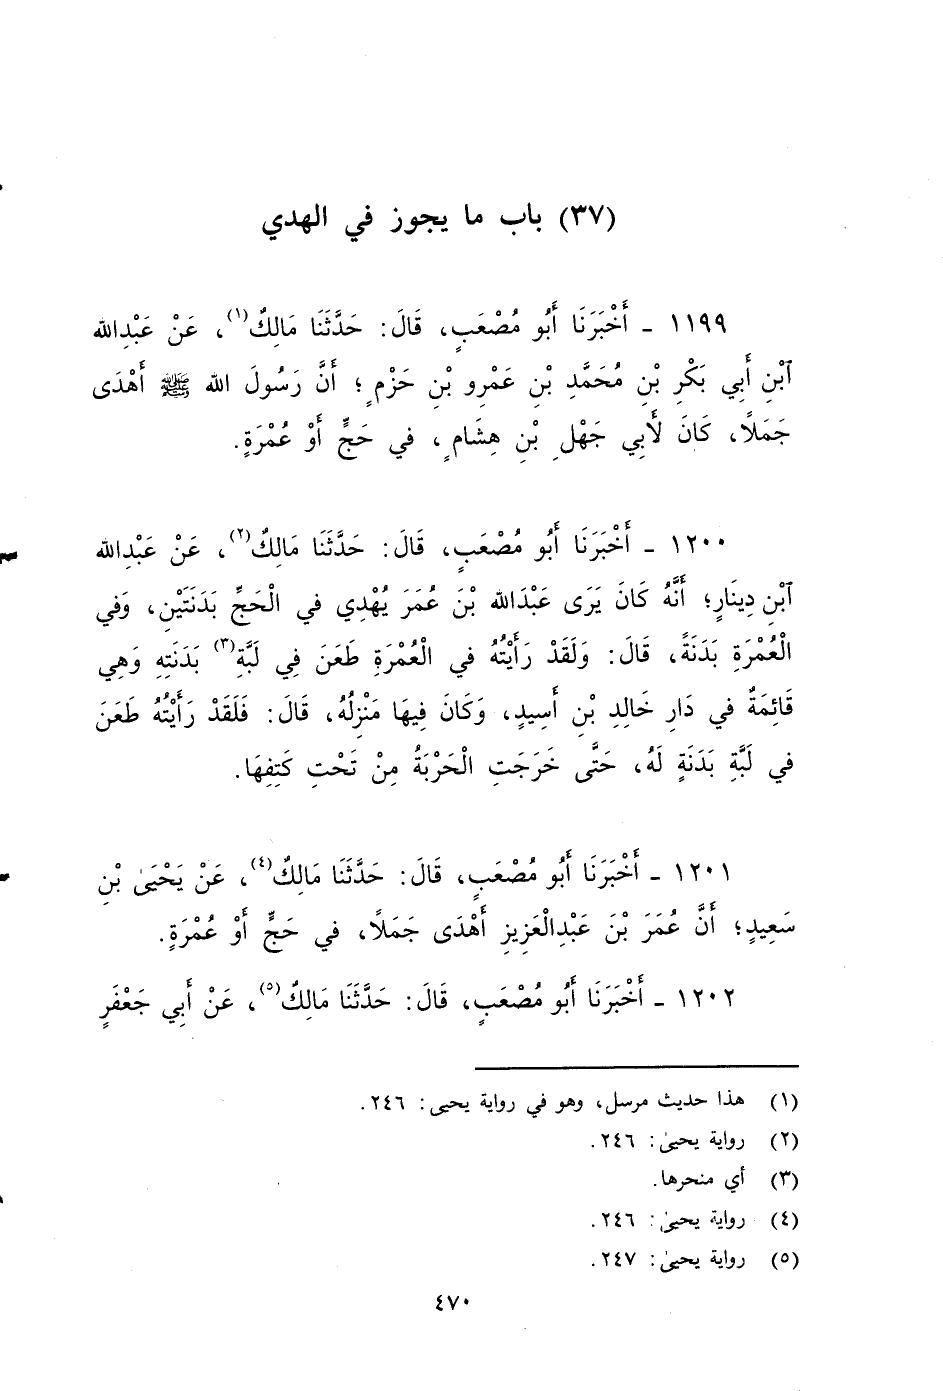 (٣٧) باب ما يجوز في الهدي
١١٩٩ ـ أَخْبَرَنَا أَبُو مُصْعَبٍ، قَالَ: حَدَّثَنَا مَالِكٌ(١)، عَنْ عَبْدِالله
آبْنِ أَبِي بَكْرِ بْنِ مُحَمَّدِ بْنِ عَمْرِو بْنِ حَزْمٍ؛ أَنَّ رَسُولَ الله ﷺ أَهْدَى
جَمَلًا، كَانَ لَأبِي جَهْلِ بْنِ هِشَامٍ، في حَجٍّ أَوْ عُمْرَةٍ.
١٢٠٠ ـ أَخْبَرَنَا أَبُو مُصْعَبٍ، قَالَ: حَدَّثَنَا مَالِكٌ(٢)، عَنْ عَبْدِالله
آبْنِ دِينَارٍ؛ أَنَّهُ كَانَ يَرَى عَبْدَالله بْنَ عُمَرَ يُهْدِي في الْحَجِّ بَدَنَتَيْنِ، وَفي
الْعُمْرَةِ بَدَنَةً، قَالَ: وَلَقَدْ رَأَيْتُهُ في الْعُمْرَةِ طَعَنَ فِي لَبَّةِ(٣) بَدَنَتِهِ وَهِي
قَائِمَةٌ في دَارِ خَالِدِ بْنِ أَسِيدٍ، وَكَانَ فِيهَا مَنْزِلُهُ، قَالَ: فَلَقَدْ رَأَيْتُهُ طَعَنَ
في لَبَّةِ بَدَنَةٍ لَهُ، حَتَّى خَرَجَتِ الْحَرْبَةُ مِنْ تَحْتِ كَتِفِهَا.
١٢٠١ ـ أَخْبَرَنَا أَبُو مُصْعَبٍ، قَالَ: حَدَّثَنَا مَالِكٌ(٤)، عَنْ يَحْيَىٰ بْنِ
سَعِيدٍ؛ أَنَّ عُمَرَ بْنَ عَبْدِالْعَزِيزِ أَهْدَى جَمَلًا، في حَجٍّ أَوْ عُمْرَةٍ.
١٢٠٢ ـ أَخْبَرَنَا أَبُو مُصْعَبٍ، قَالَ: حَدَّثَنَا مَالِكٌ(٥)، عَنْ أَبِي جَعْفَرٍ
(١) هذا حديث مرسل، وهو في رواية يحيى: ٢٤٦.
(٢) رواية يحيىٰ: ٢٤٦.
(٣) أي منحرها.
(٤) رواية يحيىٰ: ٢٤٦.
(٥) رواية يحيىٰ: ٢٤٧.
٤٧٠